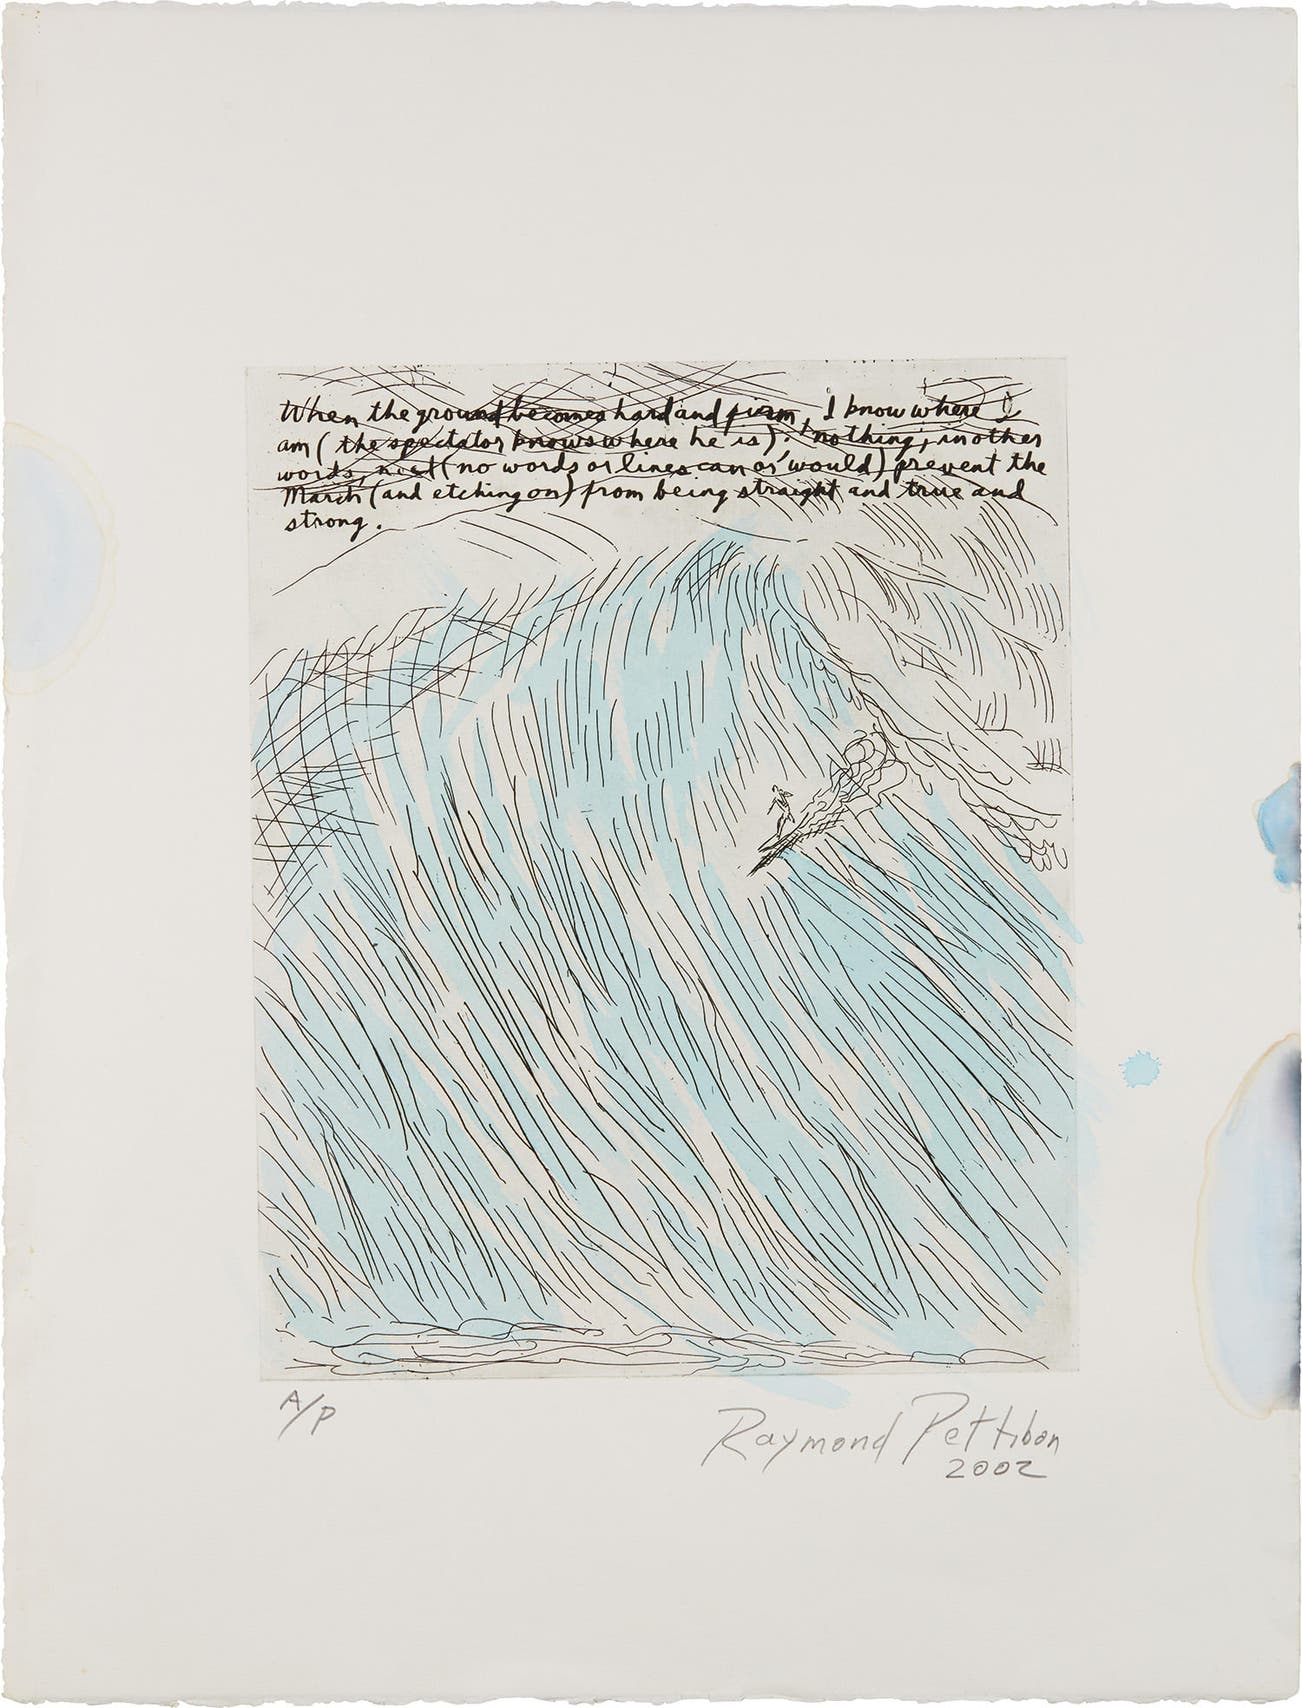 When the ground becomes hard and firm, I know where I
am (the spectator knows where he is). 'nothing', in other
words, (no words or lines can or would) prevent the
March (and etching on) from being straight and true and
strong.
A/P
Raymond Pettibon
2002